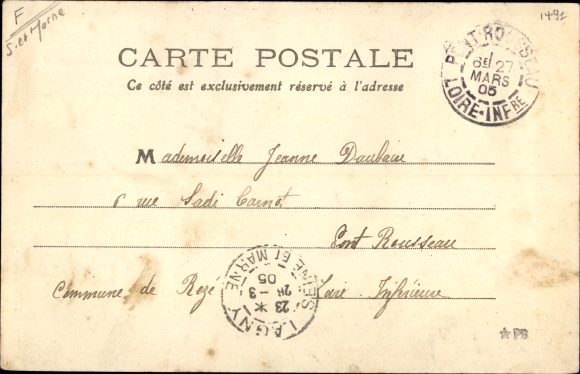 F
S. et Marne
1491
CARTE POSTALE
Ce côté est exclusivement réservé à l'adresse
PONT-ROUSSEAU
6E 27
MARS
05
LOIRE-INFRE
Mademoiselle Jeanne
6 rue Sadi Carnot
Pont Rousseau
Commune de Rezé Loire Inférieure
LAGNY
23 * 26-3
05
SEINE ET MARNE
PB